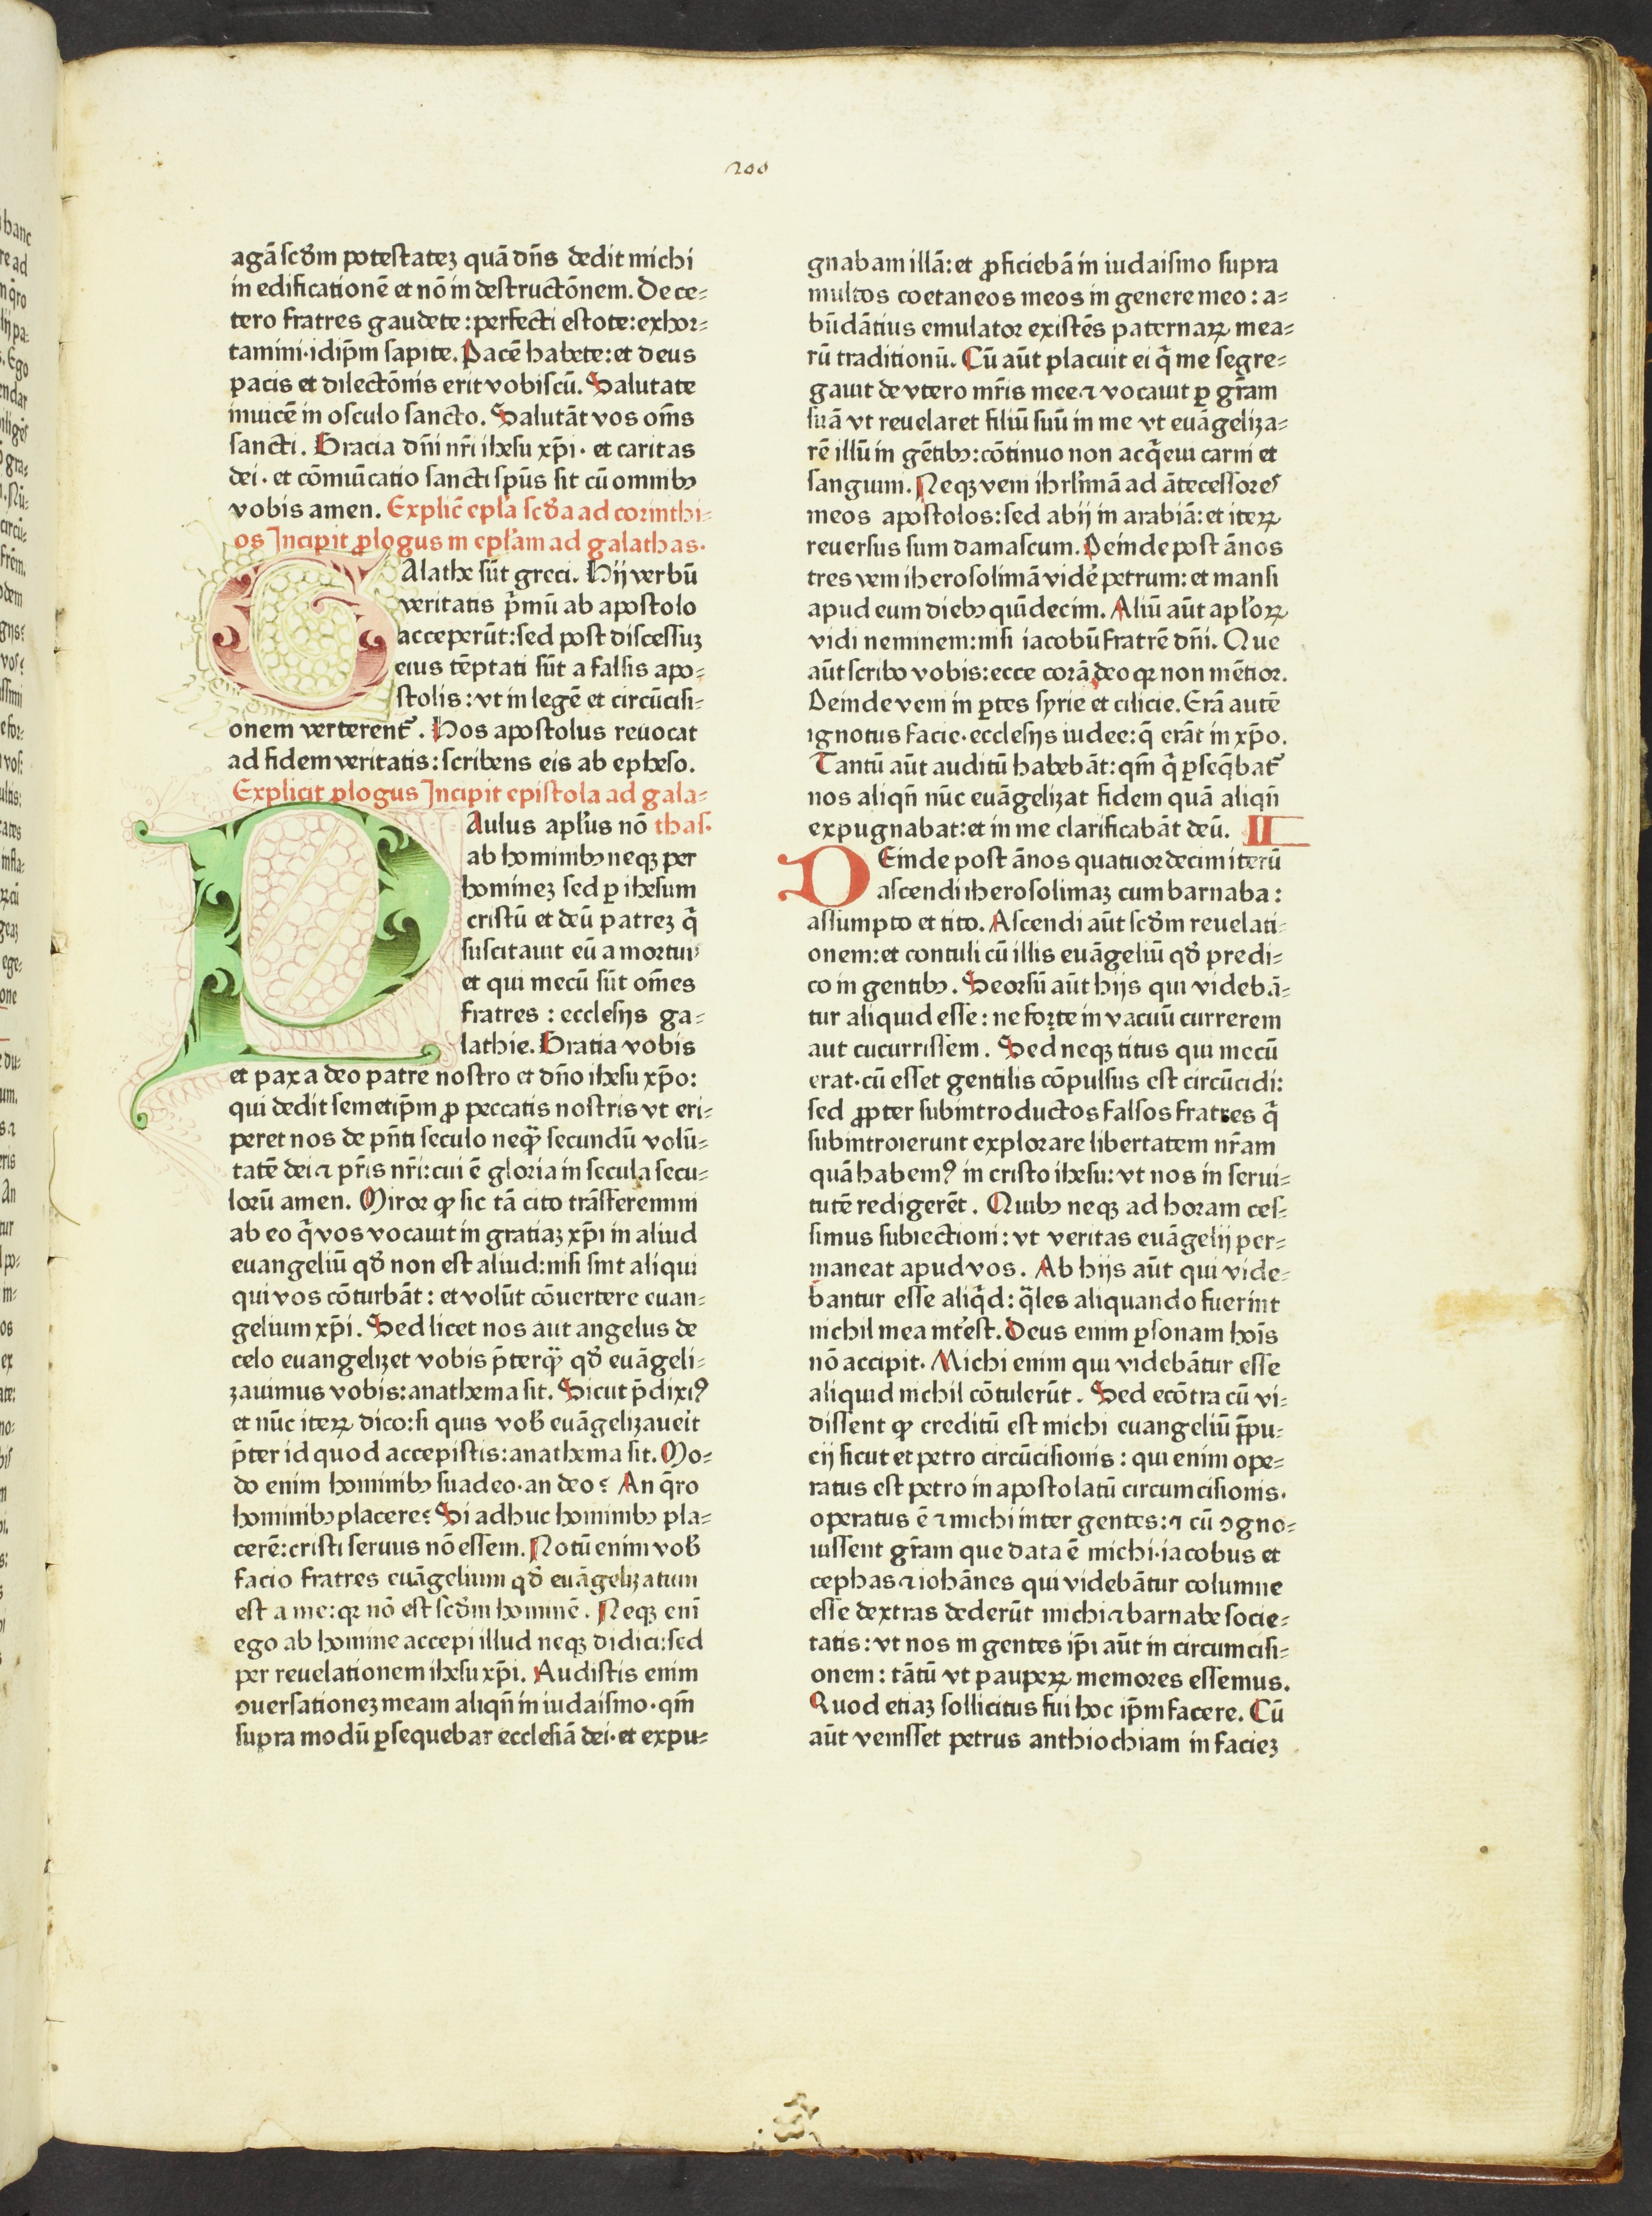 200
agā scd̄m potestateʒ quā dn̄s dedit michi
in edificationē et nō in destructōnem. De ce⸗
tero fratres gaudete : perfecti estote: exhor⸗
tamini·idip̄m sapite. Pacē habete: et deus
pacis et dilectōnis erit vobiscū. Salutate
inuicē in osculo sancto. Salutāt vos om̄s
sancti. Gracia dn̄i nr̄i ihesu xp̄i · et caritas
dei · et cōmuīcatio sancti sp̄us sit cū omnibꝫ
vobis amen. Explic̄ epl̄a scd̄a ad corinthi⸗
os Incipit ꝓlogus in epl̄am ad galathas.
GAlathe sūt greci. Hij verbū
veritatis p̄mū ab apostolo
acceperūt: sed post discessuʒ
eius tēptati sūt a falsis apo⸗
stolis : vt in legē et circūcisi⸗
onem verterent᷑. Hos apostolus reuocat
ad fidem veritatis : scribens eis ab epheso.
Explicit ꝓlogus Incipit epistola ad gala⸗
PAulus apl̄us nō thas.
ab hominibꝫ neqꝫ per
homineʒ sed ꝑ ihesum
cristū et deū patreʒ q̄
suscitauit eū a mortuis
et qui mecū sūt om̄es
fratres : ecclesijs ga⸗
lathie. Gratia vobis
et pax a deo patre nostro et dn̄o ihesu xp̄o:
qui dedit semetip̄m ꝓ peccatis nostris vt eri⸗
peret nos de pn̄ti seculo neqꝫ̄ secundū volū⸗
tatē dei ⁊ pr̄is nr̄i: cui ē gloria in secula secu⸗
lorū amen. Miror ꝙ sic tā cito trāsferemini
ab eo q̄ vos vocauit in gratiaʒ xp̄i in aliud
euangeliū qd̄ non est aliud: nisi sint aliqui
qui vos cōturbāt : et volūt cōuertere euan⸗
gelium xp̄i. Sed licet nos aut angelus de
celo euangelizet vobis p̄terqꝫ̄ qd̄ euāgeli⸗
zauimus vobis: anathema sit. Sicut p̄dixiꝰ
et nūc iteꝝ dico: si quis vob̄ euāgelizaueīt
p̄ter id quod accepistis: anathema sit. Mo⸗
do enim hominibꝫ suadeo · an deo? An q̄ro
hominibꝫ placere? Si adhuc hominibꝫ pla⸗
cerē: cristi seruus nō essem. Notū enim vob̄
facio fratres euāgelium qd̄ euāgelizatum
est a me: qꝛ nō est scd̄m hominē. Neqꝫ enī
ego ab homine accepi illud neqꝫ didici: sed
per reuelationem ihesu xp̄i. Audistis enim
ↄuersationeʒ meam aliqn̄ in iudaismo · qm̄
supra modū ꝑsequebar ecclesiā dei · et expu⸗
gnabam illā: et ꝓficiebā in iudaismo supra
multos coetaneos meos in genere meo : a⸗
būdātius emulator existēs paternaꝝ mea⸗
rū traditionū. Cū aūt placuit ei q̄ me segre⸗
gauit de vtero mr̄is mee ⁊ vocauit ꝑ gr̄am
suā vt reuelaret filiū suū in me vt euāgeliza⸗
rē illū in gētibꝫ: cōtinuo non acq̄eui carni et
sanguini. Neqꝫ veni ihrl̄imā ad ātecessores
meos apostolos: sed abij in arabiā: et iteꝝ
reuersus sum damascum. Deinde post ānos
tres veni iherosolimā videre petrum: et mansi
apud eum diebꝫ quīdecim. Aliū aūt apl̄oꝝ
vidi neminem: nisi iacobū fratrē dn̄i. Que
aūt scribo vobis: ecce corā deo qꝛ non mētior.
Deinde veni in ꝑtes syrie et cilicie. Erā autē
ignotus facie · ecclesijs iudee: q̄ erāt in xp̄o.
Tantū aūt auditū habebāt: qm̄ q̄ ꝑseq̄bat᷑
nos aliqn̄ nūc euāgelizat fidem quā aliqn̄
expugnabat: et in me clarificabāt deū. II
DEinde post ānos quatuordecim iterū
ascendi iherosolimaʒ cum barnaba :
assumpto et tito. Ascendi aūt scd̄m reuelati⸗
onem: et contuli cū illis euāgeliū qd̄ predi⸗
co in gentibꝫ. Seorsū aūt hijs qui videbā⸗
tur aliquid esse : ne forte in vacuū currerem
aut cucurrissem. Sed neqꝫ titus qui mecū
erat · cū esset gentilis cōpulsus est circūcidi:
sed ꝓpter subintroductos falsos fratres q̄
subintroierunt explorare libertatem nr̄am
quā habemꝰ in cristo ihesu: vt nos in serui⸗
tutē redigerēt. Quibꝫ neqꝫ ad horam ces⸗
simus subiectioni : vt veritas euāgelij per⸗
maneat apud vos. Ab hijs aūt qui vide⸗
bantur esse aliq̄d: q̄les aliquando fuerint
nichil mea int̄est. Deus enim ꝑsonam hoīs
nō accipit. Michi enim qui videbātur esse
aliquid nichil cōtulerūt. Sed ecōtra cū vi⸗
dissent ꝙ creditū est michi euangeliū p̄pu⸗
cij sicut et petro circūcisionis : qui enim ope⸗
ratus est petro in apostolatū circumcisionis.
operatus ē ⁊ michi inter gentes: ⁊ cū ↄgno⸗
uissent gr̄am que data ē michi · iacobus et
cephas ⁊ iohānes qui videbātur columne
esse dextras dederūt michi ⁊ barnabe socie⸗
tatis : vt nos in gentes ip̄i aūt in circumcisi⸗
onem : tātū vt paupeꝝ memores essemus.
Quod etiaʒ sollicitus fui hoc ip̄m facere. Cū
aūt venisset petrus anthiochiam in facieʒ